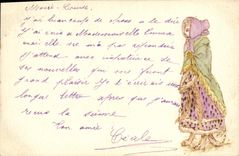 Marie-Louise,
J'ai beaucoup de choses à te dire
J'ai écris à Mademoiselle Emma
mais elle ne m'a pas répondue
J'attend avec impatience de
ses nouvelles qui me feront
grand plaisir je t'écrirai une
longue lettre après que j'aurai
reçu la sienne
Ton amie
Cécile